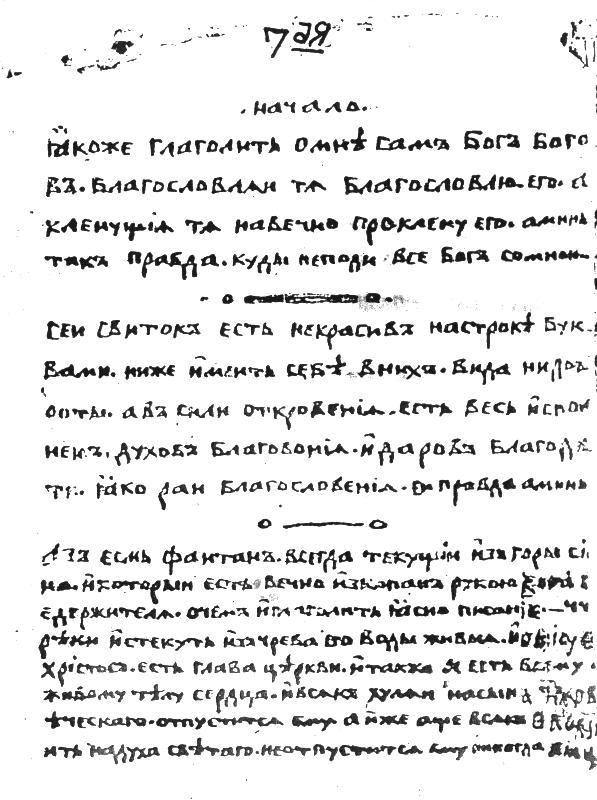 7 ая
. начало.
ꙗкоже глаголить омнѣ самъ Богъ Бого
въ. Благословлаи тѧ благословлю его. и
кленущіѧ тѧ навечно проклену его. аминь
такъ правда. куды неподи все богъ сомною.
сеи свитокъ есть некрасивъ настрокѣ бук
вами. ниже имеить себѣ внихъ. вида нидоб
роты. авъ сили откровеніѧ. есть весь испол
ненъ. духовъ благовоніѧ. идаровъ благода
ти. ꙗко раи благословеніѧ. правда аминь
Азъ есмь фантан. всегда текущіи изъ горы сі
на. икоторыи есть вечно изкопанъ рукою
едержителѧ. очемъ иглаголить ꙗсно писаніе.
рѣки истекуть изъ чрева его воды живыѧ.
христосъ. есть глава церкви. итакжа я есть всему
живому тѣлу сердца. ивсакъ хулаи насына
ѣческаго. отпустится ему аиже аще всакъ
ить надуха свѣтаго. неотпустится ему никогда